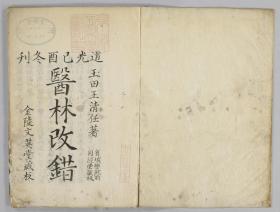 道光己酉冬刊
玉田王清任著
醫林改錯
金陵文英堂藏板